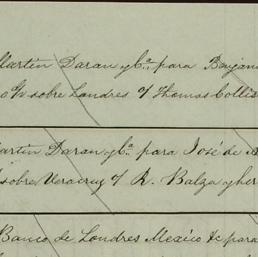 Martin Daran y Cª para Benjam
o G/ sobre Londres S/ Thomas Collis
artin Daran y Cª para José de
sobre Veracruz S/ R. Balza y her
Banco de Londres Mexico &c para